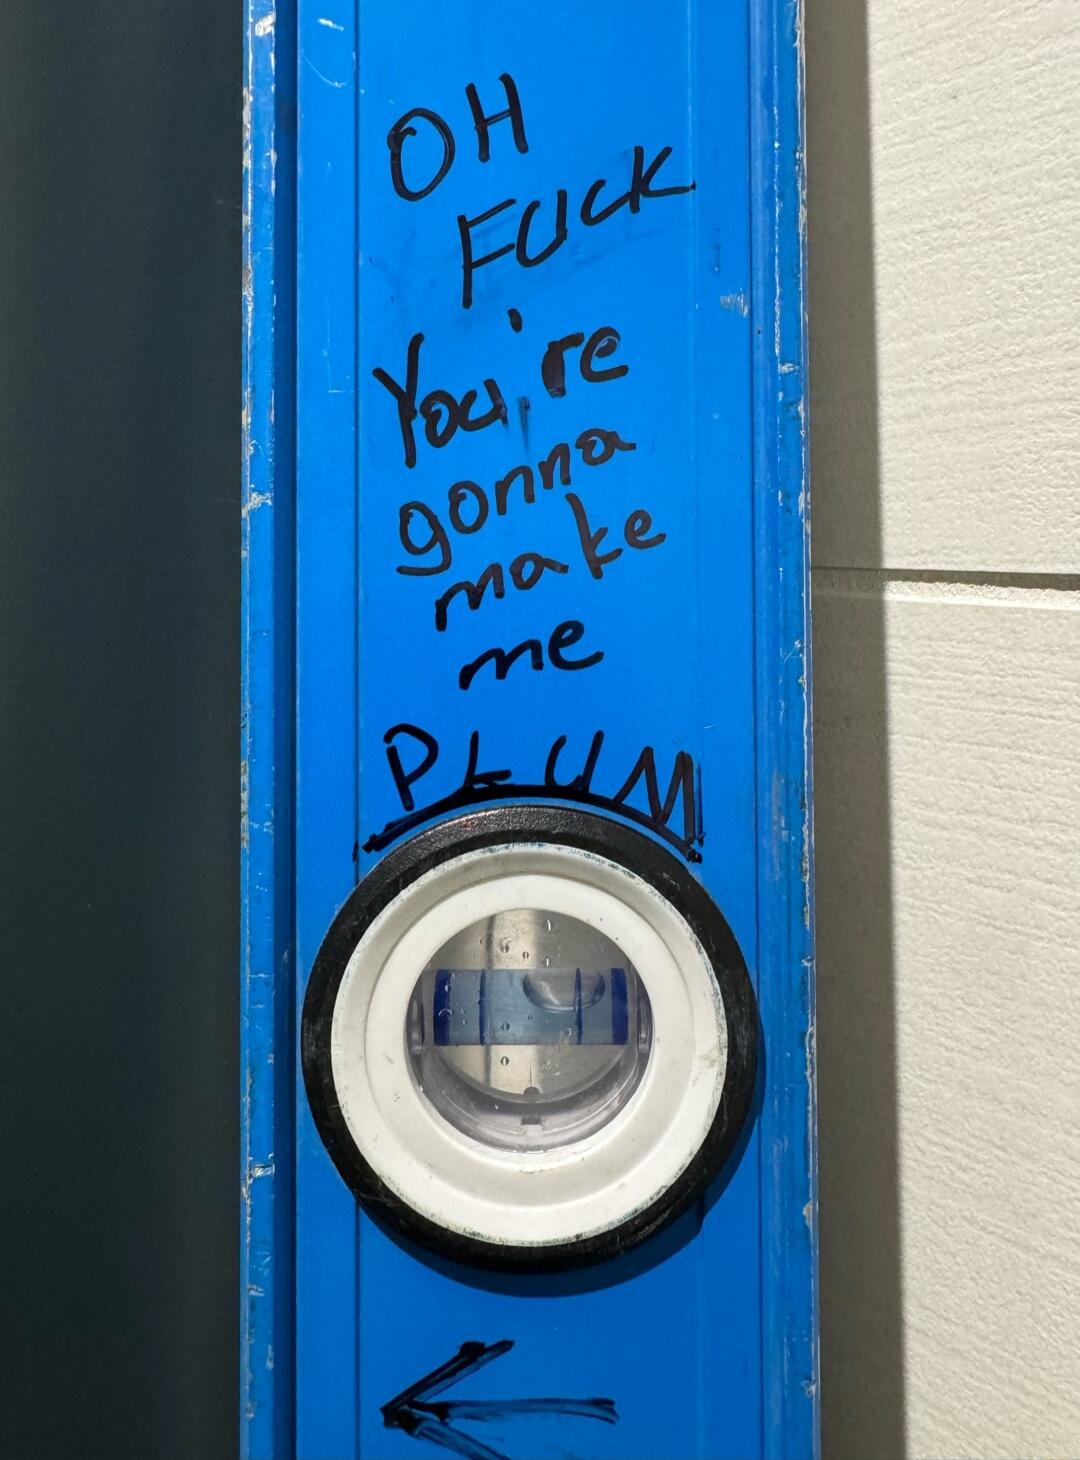 OH
FUCK
You're
gonna
make
me
PLUM